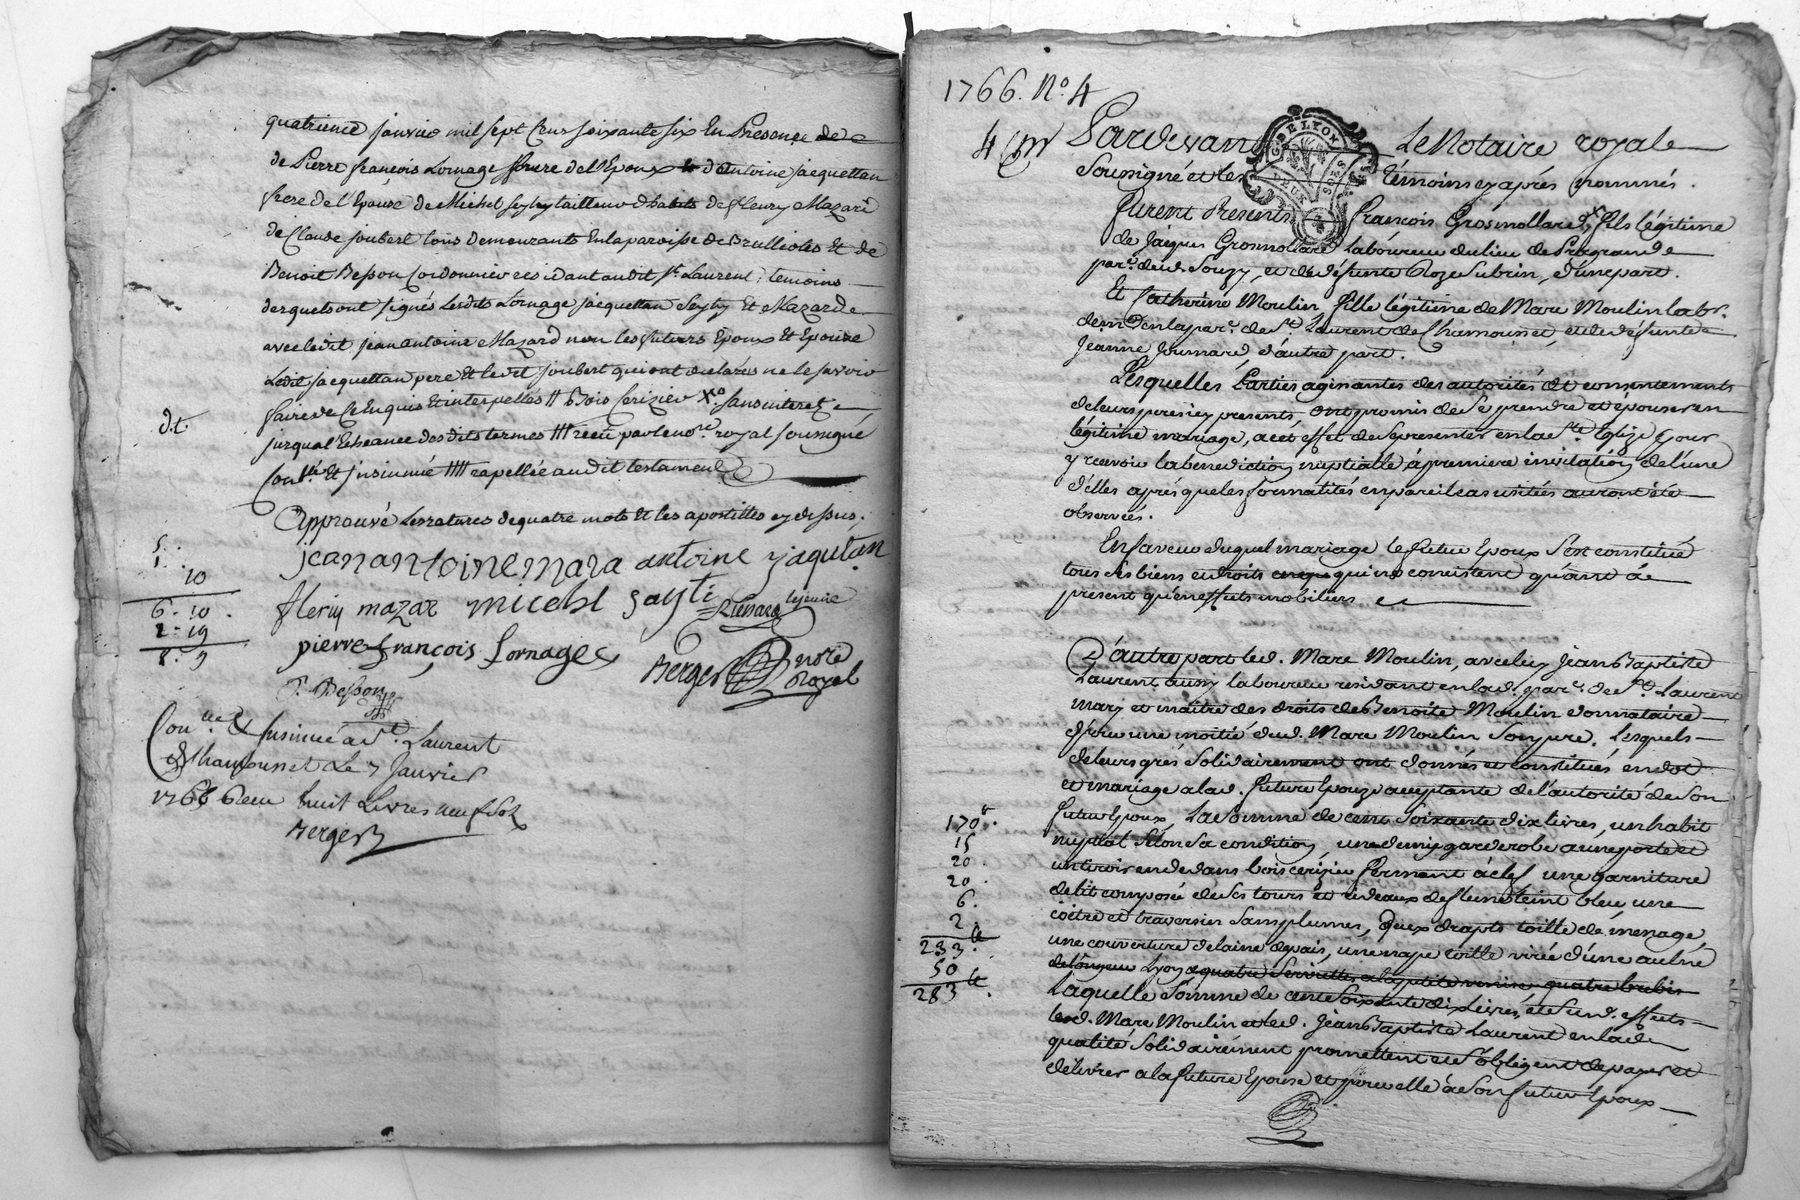 quatrieme janvier mil sept Cens soixante six En Presence de
de Pierre françois Lornage frere de l'Epoux d'Antoine jacquettan
frere de l'Epouse de Michel Seyty tailleur d'habits de fleury Mazard
de Claude joubert tous demeurants En la paroisse de Brullioles Et de
Benoit Besson Cordonnier residant audit St. Laurent, temoins
desquels ont signés Lesdits Lornage jacquettan Seyty Et Mazard
avec ledit jean antoine Mazard non les futurs Epoux Et Epouse
Ledit jacquettan pere Et ledit joubert qui ont declarés ne le savoir
faire de Ce Enquis Et interpelles # Bois Cerizier X sans interet
d.t.
jusqual Echeance desdits termes ### recu par le nore. royal soussigné
Conllé Et jnsinué #### rapellée audit testament
Approuvé Les ratures de quatre mots Et les apostilles cy dessus.
5.
1. 10
6. 10.
1. 19
8. 9
jean antoine mazard antoine yaqutan
flery mazar micehl sayti
Lejeune
pierre françois Lornage
Berger nore Royal
B. Besson
Conlle & Insinué a St. Laurent
de Chamousset Le 7 Janvier
1766 Reçu huit Livres neuf sols
Berger
1766. No. 4
4 Cm Pardevant Le Notaire royale
G. DE LYON
DEUX SOLS
Soussigné et les témoins cy aprés nommés.
furent Présents François Grosmollard, fils légitime
de Jacques Grosmollard Laboureur du lieu de
par. de Souzy, et de défunte Cloze Subrin, d'une part.
Et Catherine Moulin, fille légitime de Marc Moulin labr.
demt. en la par. de St. Laurent de Chamousset, et de défunte
Jeanne Joumard, d'autre part.
Lesquelles Parties agissantes des autorités et consentements
de leurs peres icy presents, ont promis de se prendre et épouser en
légitime mariage, a cet effet de se presenter en la Ste. Eglize pour
y recevoir la benediction nuptialle à premiere invitation de l'une
d'elles aprés que les formalités en pareil cas usitées auront été
observées.
En faveur duquel mariage le futur Epoux s'est constitué
tous ses biens et droits qui ne consistent quant à
present qu'en effets mobiliers
D'autre part led. Marc Moulin, avec luy Jean Baptiste
Laurent aussy laboureur residant en lad. par. de St. Laurent
mary et maitre des droits de Benoite Moulin donnataire
d'une moitié dud. Marc Moulin son pere. Lesquels
de leurs grés solidairement ont donnés et constitués en dot
et mariage a lad. future Epouze acceptante de l'autorité de son
170#. futur Epoux, La somme de cent soixante dix livres, un habit
15 nuptial selon sa condition, une demy garderobe a une porte et
20. un tiroir en dedans bois cerizier fermant à clef une garniture
20. de lit composé de ses tours et rideaux de fleuret teint bleu, une
6. coitre et traversin sans plumes, deux draps toille de ménage
2
233# une couverture de laine de pais, une nape toille virée d'une aulne
50 de longueur Lyon quatre serviettes a la petite venise quatre brebis
283# Laquelle somme de cent soixante dix Livres, et susd. effets
led. Marc Moulin et led. Jean Baptiste Laurent en lad.
qualité solidairement promettent et s'obligent de payer et
délivrer a la future Epouse et pour elle à son futur Epoux